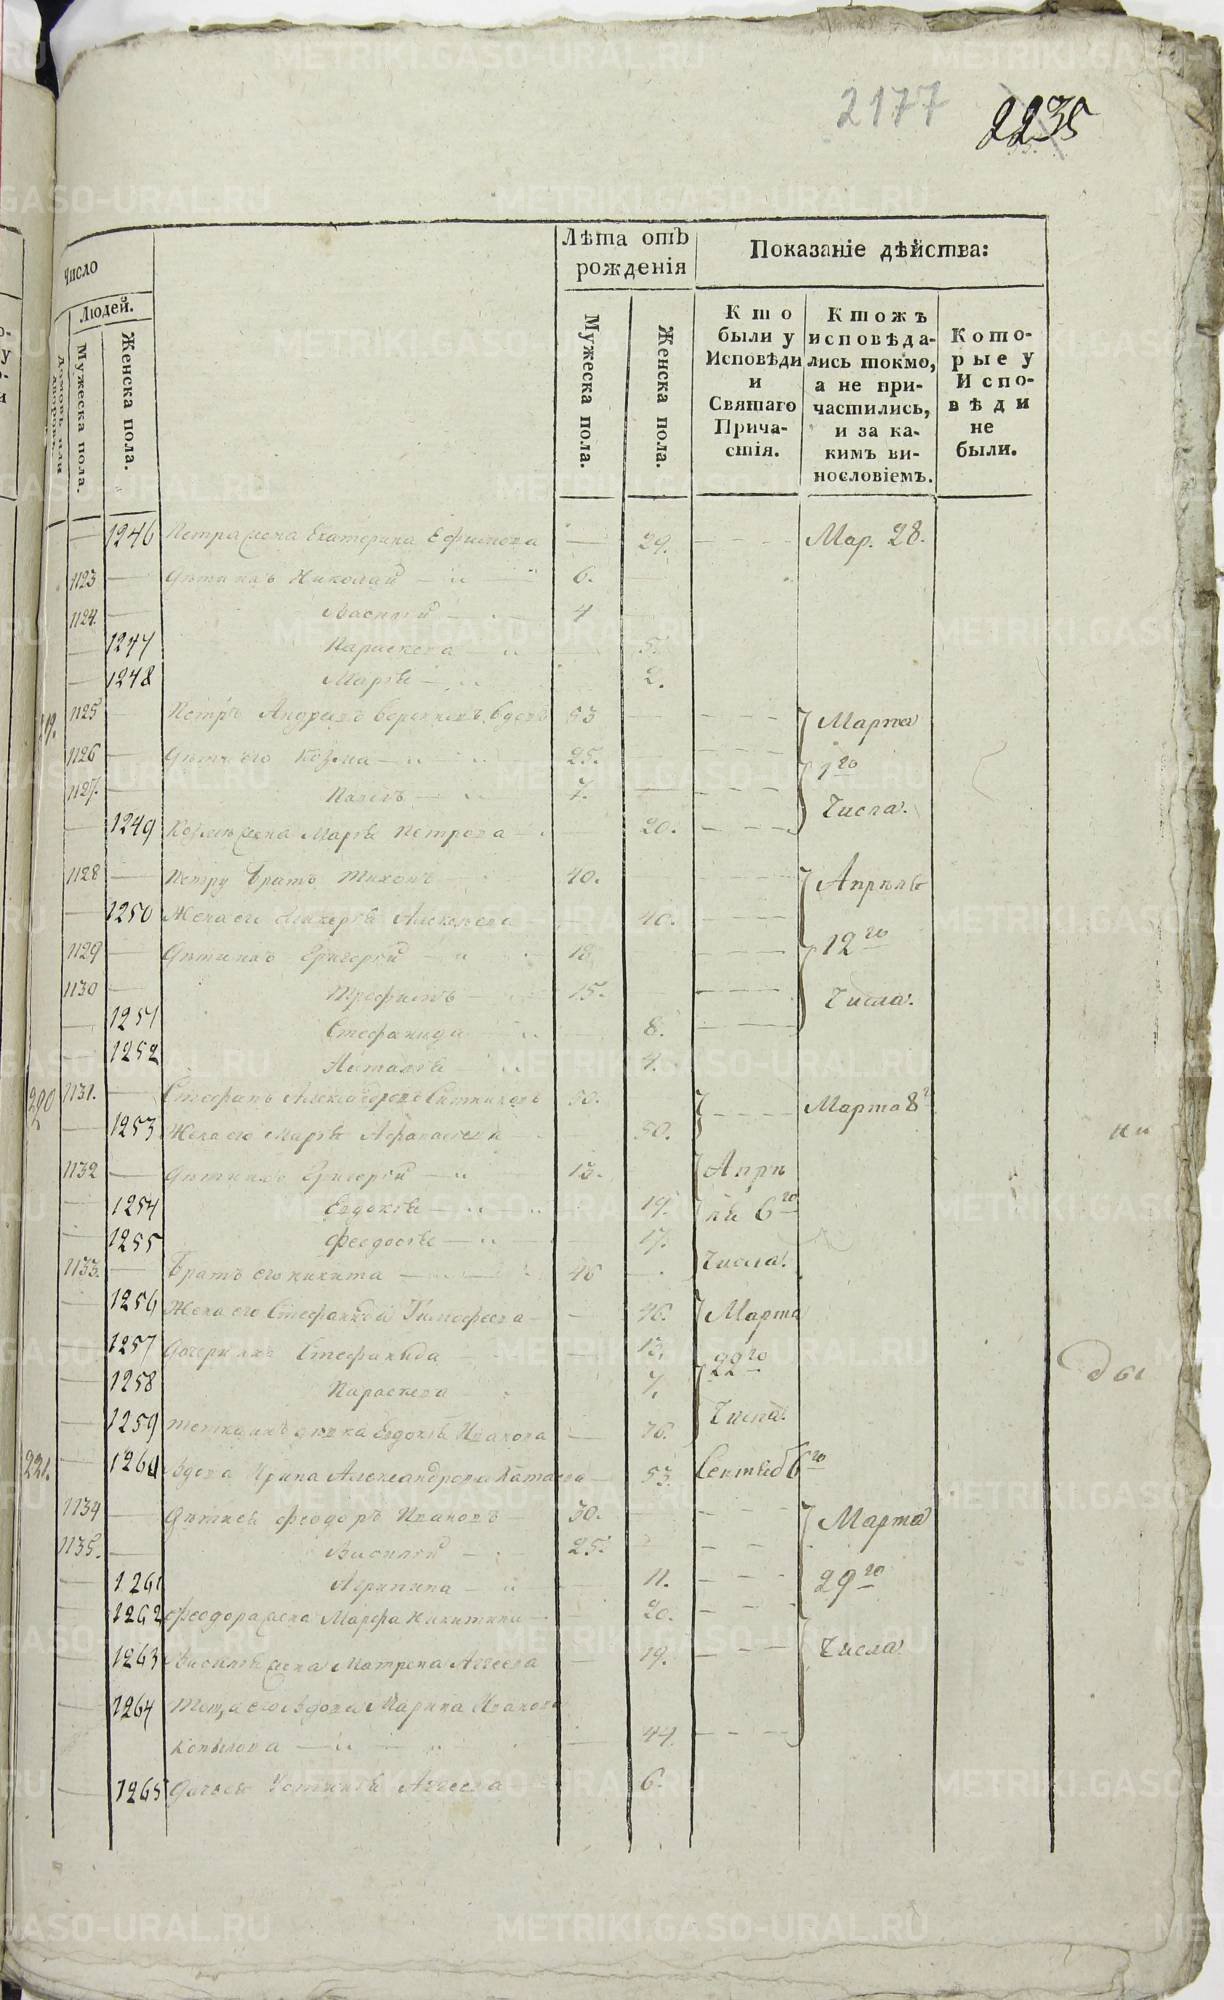 2177
2235
Число
Людей.
Домовъ или дворовъ.
Мужеска пола.
Женска пола.
Лѣта отъ рожденія
Мужеска пола.
Женска пола.
Показаніе дѣйства:
Кто были у Исповѣди и Святаго Причастія.
Ктожъ исповѣдались токмо, а не причастились, и за какимъ винословіемъ.
Которые у Исповѣди не были.
— 1246 Петра жена Екатерина Ефимова — 29. Мар. 28.
1123 — Дѣти ихъ Николай 6. —
1124. — Василій 4 —
— 1247 Параскева — 5.
— 1248 Марѳа — 2.
1125 — Петръ Андреевъ вдовъ 53 — Марта
1126 — Дѣти его Козма 25. 1го
1127. — Павелъ 7. — Числа.
— 1249 Козмы жена Марѳа Петрова 20.
1128 — Петру братъ Тихонъ 40. Апрѣля
— 1250 Жена его Гликерія Алексѣева 40. 12го
1129 — Дѣти ихъ Григорій 18
1130 — Трофимъ 15. Числа.
— 1251 Стефанида 8.
— 1252 Наталія 4.
220 1131. — Стефанъ Александровъ Ситниковъ 50. Марта 8
— 1253 Жена его Марѳа Афанасьева 50.
1132 — Дѣти ихъ Григорій 13. Апрѣ
— 1254 Евдокія 19. ля 6го
— 1255 Феодосія 17.
1133. — Братъ его Никита 46 — Числа.
— 1256 Жена его Стефанида Тимофеева 46. Марта
— 1257 Дочери ихъ Стефанида 13. 22го
— 1258 Параскева 7.
— 1259 Евдокія Иванова 76. Числа.
221. — 1260 Вдова Ирина Александрова Катаева 53. Сентяб 6го
1134 — Дѣти ея Феодоръ Ивановъ 30. Марта
1135. — Василій 25.
— 1261 Агрипина 11. 29го
— 1262 Феодора жена Марфа Никитина 20.
— 1263 Василья жена Матрена Авѵеева 19. Числа
— 1264 Теща его вдова Марина Иванова
Копылова 44.
— 1265 Дочь ея Устинья 6.
METRIKI.GASO-URAL.RU